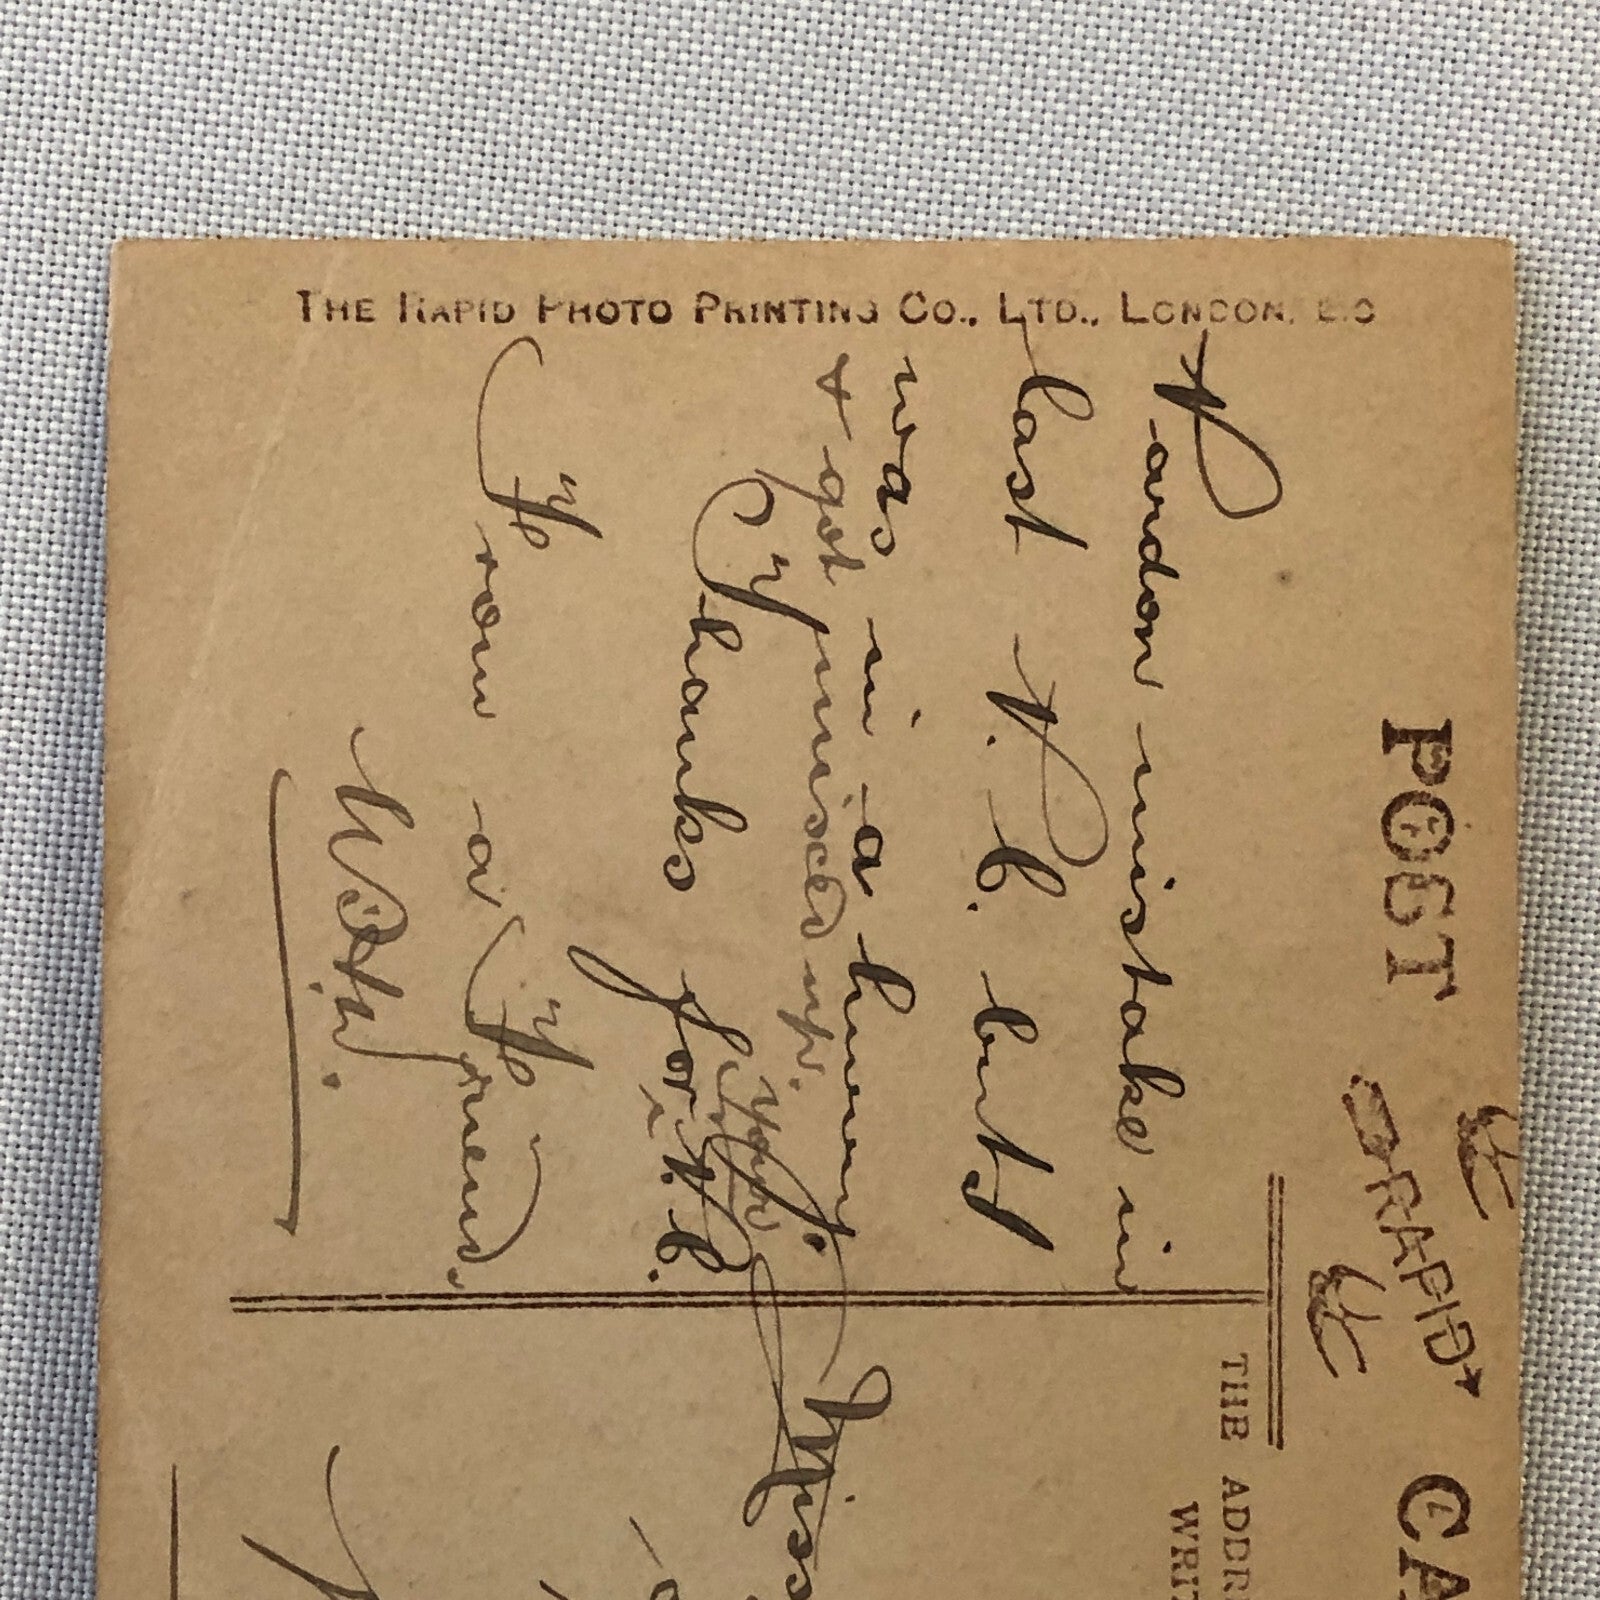 THE RAPID PHOTO PRINTING Co., LTD., LONDON, E.C
POST CA
RAPID
THE ADDR
WRIT
Pardon mistake in
last P. C. but I
was in a hurry.
& got mixed up.
Thanks for P. C.
From a Friend,
Miss